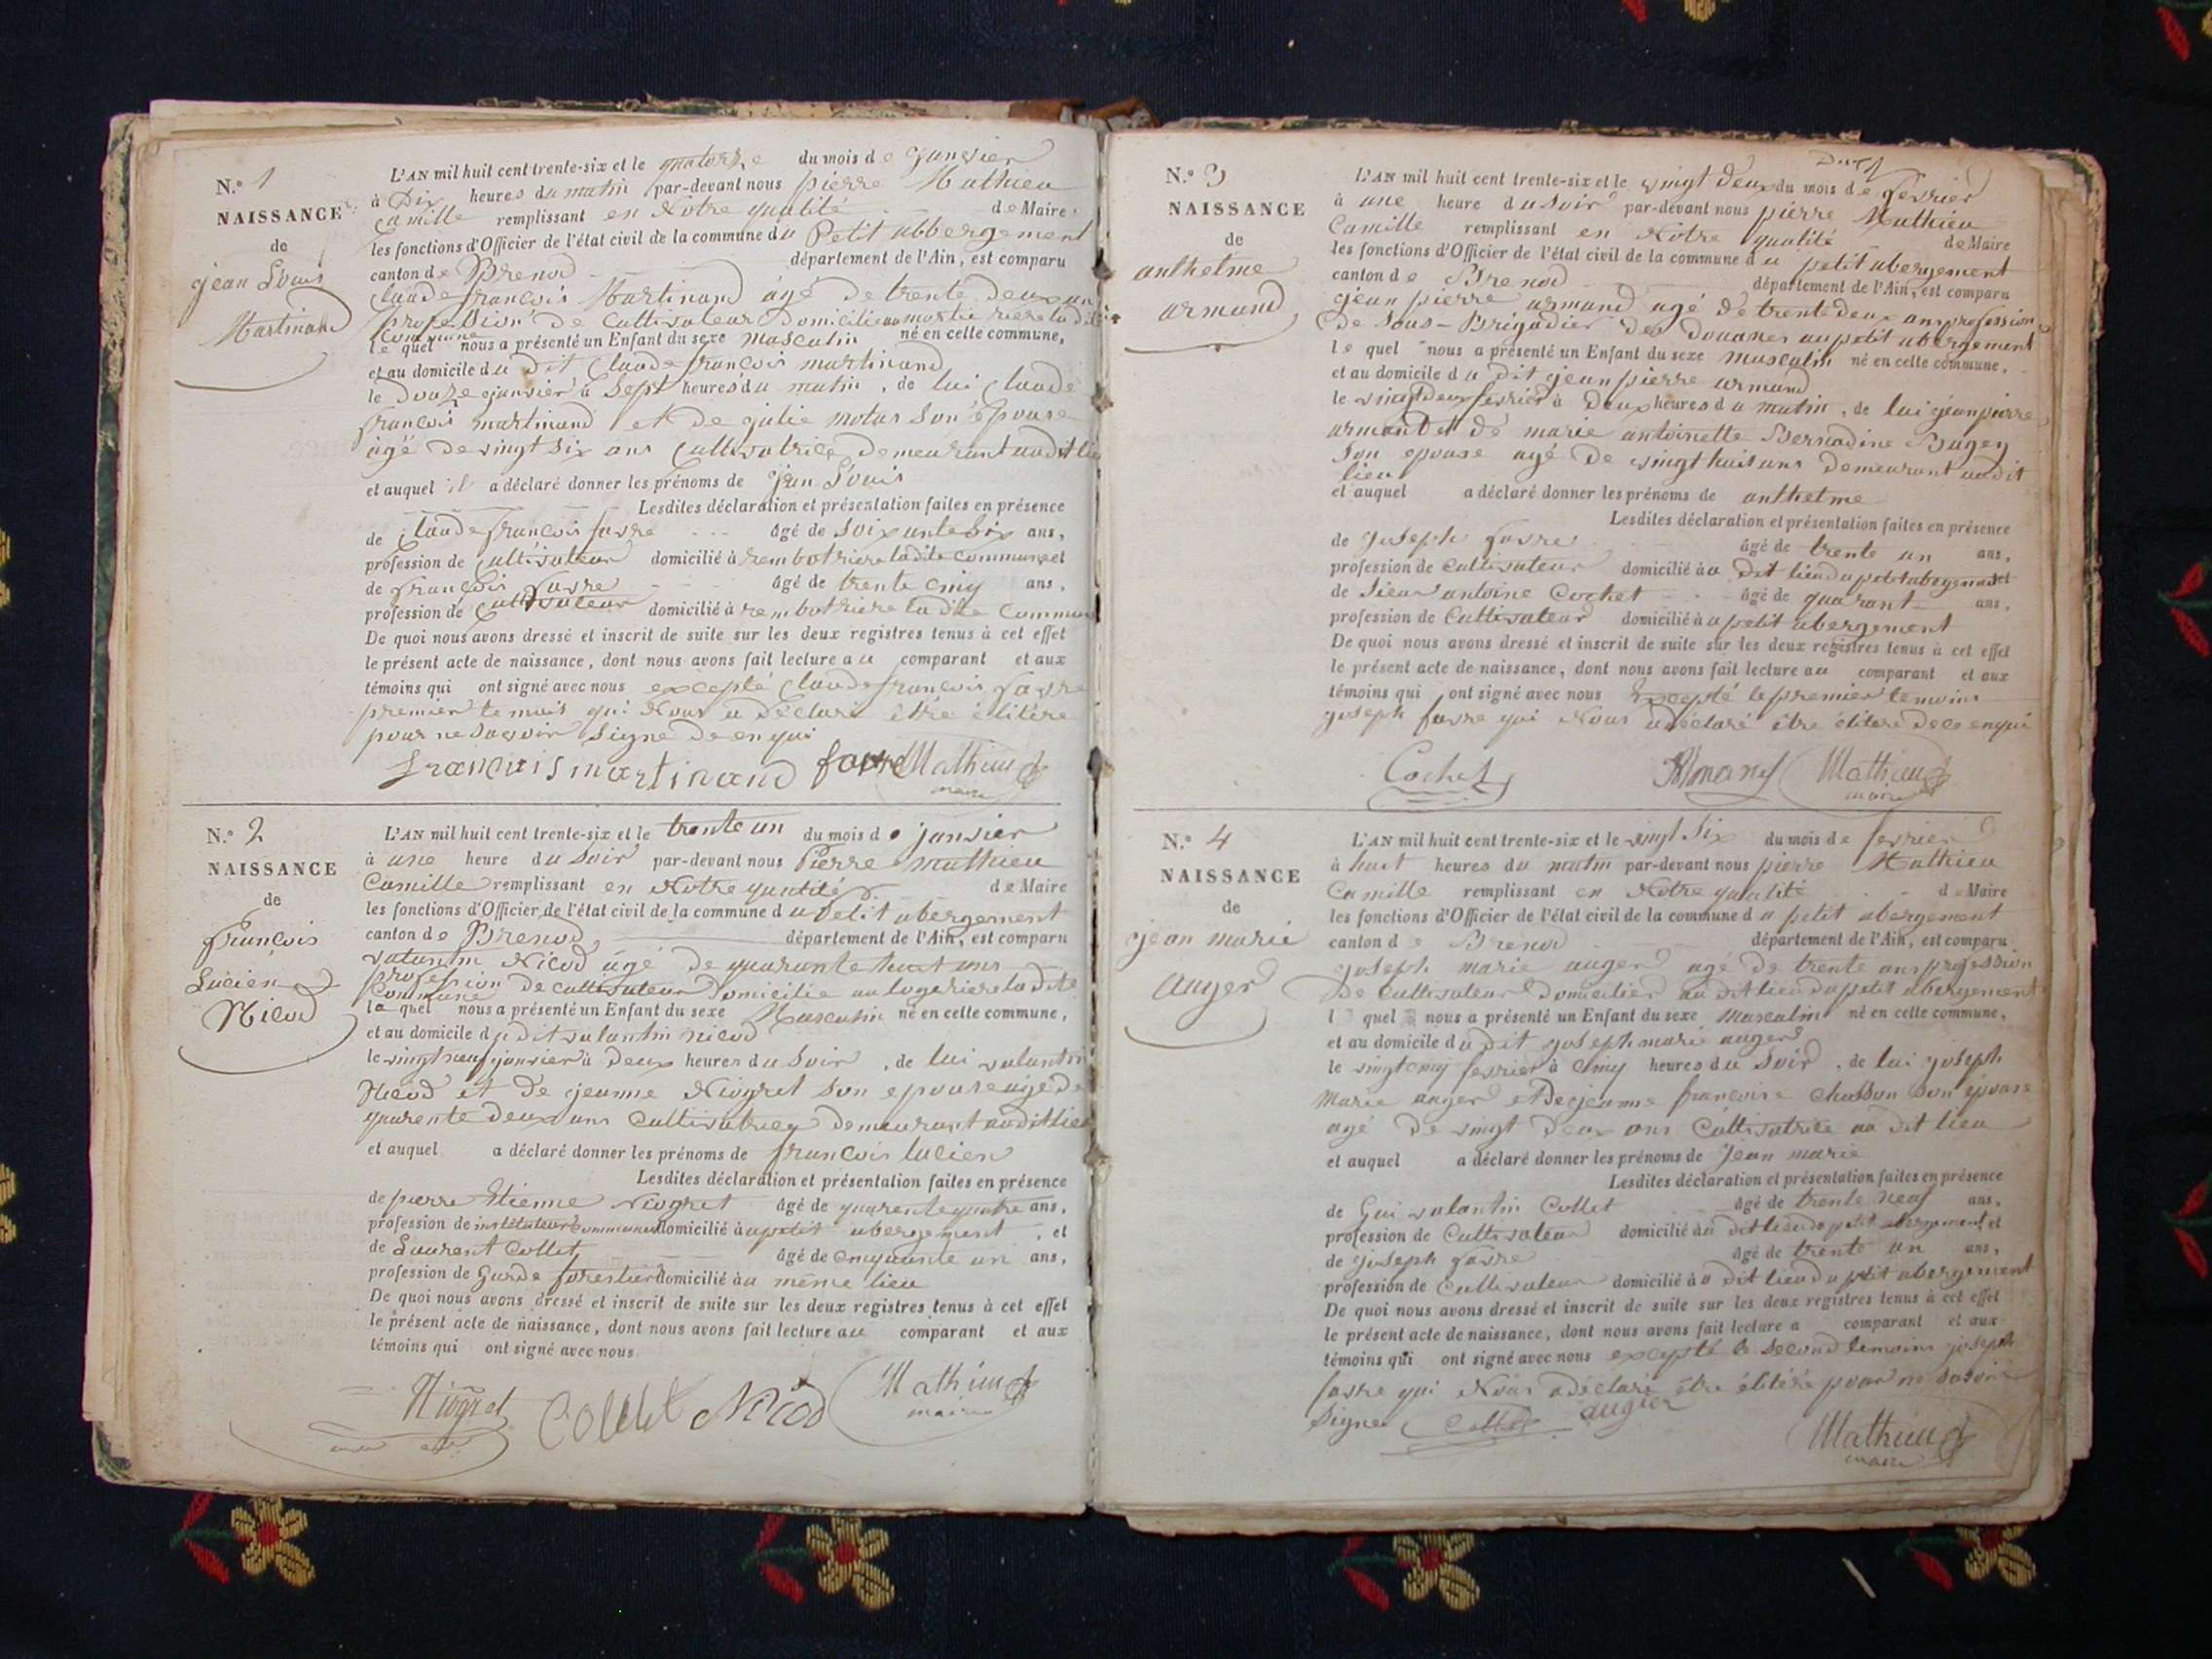 N.º 1
NAISSANCE
de
jean Louis
Martinand
L'AN mil huit cent trente-six et le quatorze du mois de janvier
à Dix heures du matin par-devant nous pierre Mathieu
Camille remplissant en Notre qualité de Maire
les fonctions d'Officier de l'état civil de la commune du Petit abbergement
canton de Brenod département de l'Ain, est comparu
Claude françois Martinand âgé de trente deux ans
profession de Cultivateur Domicilié rière la dite
Commune
le quel nous a présenté un Enfant du sexe masculin né en celle commune,
et au domicile du dit Claude françois martinand
le Douze janvier à Sept heures du matin, de lui Claude
françois martinand et de julie son épouse
âgé de vingt six ans Cultivatrice Demeurant audit lieu
et auquel il a déclaré donner les prénoms de jean Louis
Lesdites déclaration et présentation faites en présence
de Claude françois favre âgé de Soixante six ans,
profession de Cultivateur domicilié à rière ladite Commune et
de françois favre âgé de trente cinq ans,
profession de Cultivateur domicilié à rière la dite Commune
De quoi nous avons dressé et inscrit de suite sur les deux registres tenus à cet effet
le présent acte de naissance, dont nous avons fait lecture au comparant et aux
témoins qui ont signé avec nous excepté Claude françois favre
premier temoin qui Nous a déclaré être élitéré
pour ne Savoir Signé de enqui
françois martinand favre Mathieu
maire
N.º 2
NAISSANCE
de
françois
Lucien
Nicod
L'AN mil huit cent trente-six et le trente un du mois de janvier
à une heure du soir par-devant nous Pierre mathieu
Camille remplissant en Notre qualité de Maire
les fonctions d'Officier de l'état civil de la commune du Petit abergement
canton de Brenod département de l'Ain, est comparu
valantin Nicod âgé de quarante huit ans
profession de cultivateur Domicilié rière la dite
Commune
le quel nous a présenté un Enfant du sexe Masculin né en celle commune,
et au domicile du dit valantin nicod
le vingt neuf janvier à deux heures du Soir, de lui valantin
Nicod et de jeanne Niogret Son epouse âgé de
quarente deux ans Cultivatrice demeurant audit lieu
et auquel a déclaré donner les prénoms de françois lucien
Lesdites déclaration et présentation faites en présence
de pierre Etienne Niogret âgé de quarente quatre ans,
profession de instituteur Communal domicilié à u petit abergement, et
de Laurent Collet âgé de cinquante un ans,
profession de Garde forestier domicilié à u même lieu
De quoi nous avons dressé et inscrit de suite sur les deux registres tenus à cet effet
le présent acte de naissance, dont nous avons fait lecture au comparant et aux
témoins qui ont signé avec nous
Niogret Collet Nicod Mathieu
maire
N.º 3
NAISSANCE
de
anthelme
armand
L'AN mil huit cent trente-six et le vingt deux du mois de fevrier
à une heure du soir par-devant nous pierre Mathieu
Camille remplissant en Notre qualité de Maire
les fonctions d'Officier de l'état civil de la commune du petit abergement
canton de Brenod département de l'Ain, est comparu
jean pierre armand agé de trente deux ans profession
de Sous-Brigadier des Douanes au petit abergement
le quel nous a présenté un Enfant du sexe masculin né en celle commune,
et au domicile du Dit jean pierre armand
le vingt deux fevrier à Deux heures du matin, de lui jean pierre
armand et de marie antoinette Bernadine Bugey
Son epouse agé de vingt huit ans demeurant audit
lieu
et auquel a déclaré donner les prénoms de anthelme
Lesdites déclaration et présentation faites en présence
de joseph favre âgé de trente un ans,
profession de cultivateur domicilié à u Dit lieu du petit abergement et
de Sieur antoine Cochet âgé de quarant ans,
profession de Cultivateur domicilié à u petit abergement
De quoi nous avons dressé et inscrit de suite sur les deux registres tenus à cet effet
le présent acte de naissance, dont nous avons fait lecture au comparant et aux
témoins qui ont signé avec nous Excepté le premier temoins
joseph favre qui Nous a déclaré être élitéré de ce enqui
Cochet Armand Mathieu
maire
N.º 4
NAISSANCE
de
jean marie
Auger
L'AN mil huit cent trente-six et le vingt Six du mois de fevrier
à huit heures du matin par-devant nous pierre Mathieu
Camille remplissant en Notre qualité de Maire
les fonctions d'Officier de l'état civil de la commune du petit abergement
canton de Brenod département de l'Ain, est comparu
joseph marie auger agé de trente ans profession
de cultivateur Domicilier au dit lieu du petit abergement
l quel nous a présenté un Enfant du sexe Masculin né en celle commune,
et au domicile du dit joseph marie auger
le vingt cinq fevrier à Cinq heures du Soir, de lui joseph
Marie auger et De jeanne françoise Chasson Son épouse
agé De vingt Deux ans Cultivatrice au Dit lieu
et auquel a déclaré donner les prénoms de Jean marie
Lesdites déclaration et présentation faites en présence
de Gui valantin Collet âgé de trente neuf ans,
profession de Cultivateur domicilié à u dit lieu du petit abergement, et
de joseph favre âgé de trente un ans,
profession de Cultivateur domicilié à u dit lieu du petit abergement
De quoi nous avons dressé et inscrit de suite sur les deux registres tenus à cet effet
le présent acte de naissance, dont nous avons fait lecture a comparant et aux
témoins qui ont signé avec nous excepté le second temoins joseph
favre qui Nous a déclaré être élitéré pour ne savoir
Signer Collet augier
Mathieu
maire